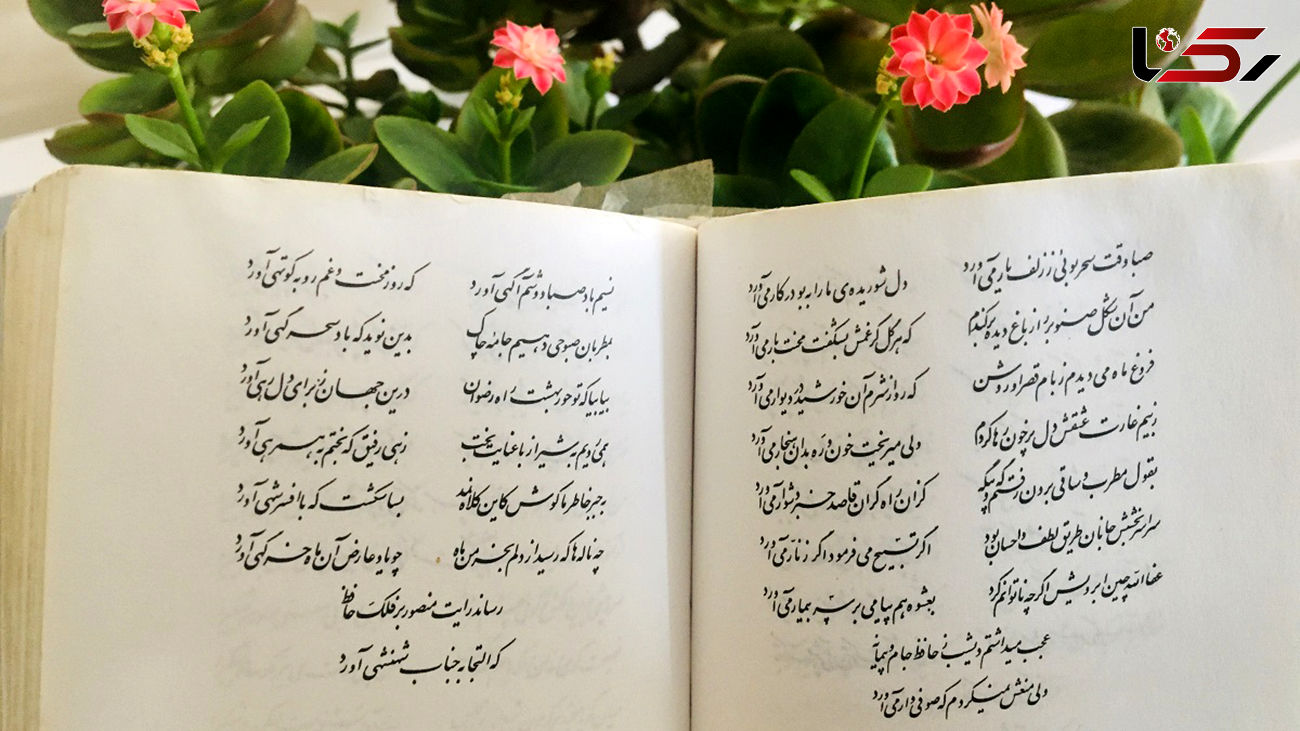 رکنا
صبا وقت سحر بوئی ز زلف یار می آورد دل شوریده‌ی ما را به بو در کار می آورد
من آن شکل صنوبر را ز باغ دیده برکندم که هر گل کز غمش بشکفت محنت بار می آورد
فروغ ماه می دیدم ز بام قصر او روشن که رو از شرم آن خورشید در دیوار می آورد
ز بیم غارت عشقش دل پر خون رها کردم ولی میریخت خون و ره بدان هنجار می آورد
بقول مطرب و ساقی برون رفتم گه و بیگه کزان راه گران قاصد خبر دشوار می آورد
سراسر بخشش جانان طریق لطف و احسان بود اگر تسبیح می فرمود اگر زنار می آورد
عفا الله چین ابرویش اگر چه ناتوانم کرد بعشوه هم پیامی بر سر بیمار می آورد
عجب میداشتم دیشب ز حافظ جام و پیمانه
ولی منعش نمیکردم که صوفی وار می آورد
نسیم باد صبا دوشم آگهی آورد که روز محنت و غم رو به کوتهی آورد
بمطربان صبوحی دهیم جامه چاک بدین نوید که باد سحرگهی آورد
بیا بیا که تو حور بهشت را رضوان درین جهان ز برای دل رهی آورد
همی رویم به شیراز با عنایت بخت زهی رفیق که بختم به همرهی آورد
به جبر خاطر ما کوش کاین کلاه نمد بسا شکست که با افسر شهی آورد
چه ناله ها که رسید از دلم بخرمن ماه چو یاد عارض آن ماه خرگهی آورد
رساند رایت منصور بر فلک حافظ
که التجا به جناب شهنشهی آورد